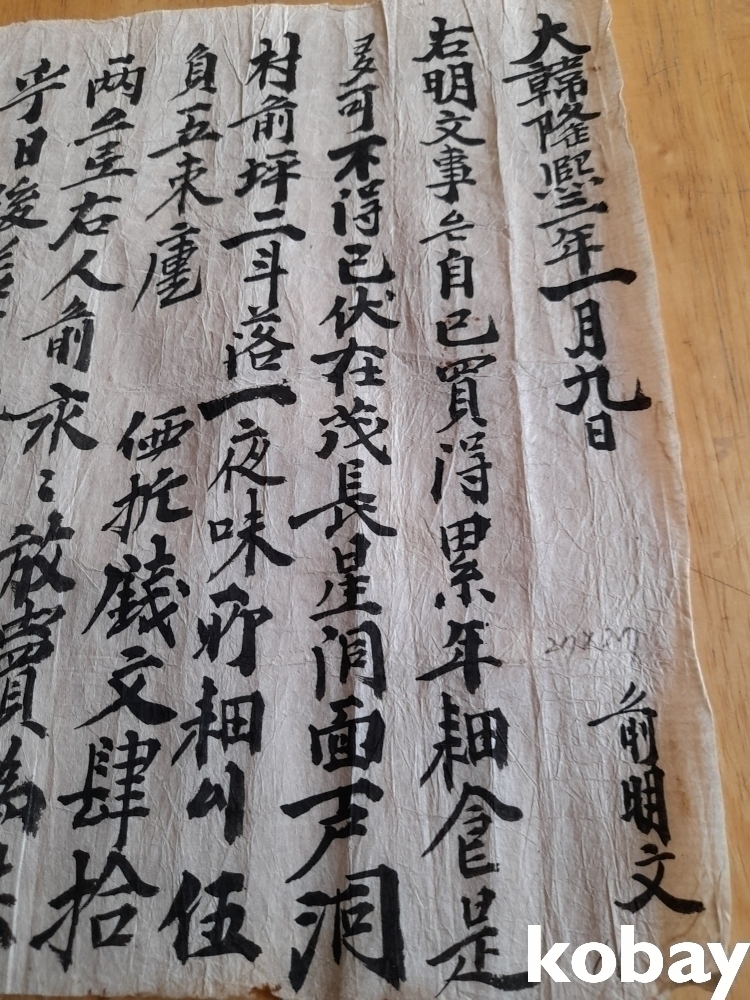 大韓隆熙三年一月九日 前明文
右明文事自己買得累年耕食是
多可不得已伏在茂長星洞面戶洞
村前坪二斗落一夜味耕伍
負五束庫価折錢文肆拾
両右人前永〻放賣為
乎日後
kobay